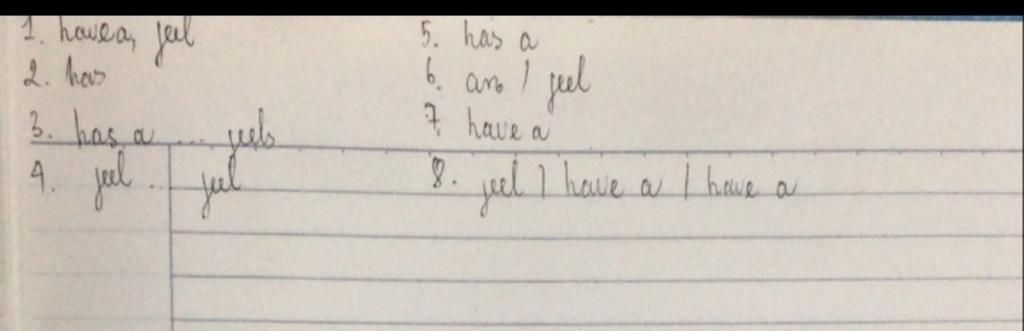 1. have a, feel
2. has
3. has a ... feels
4. feel ... feel
5. has a
6. am / feel
7. have a
8. feel / have a / have a